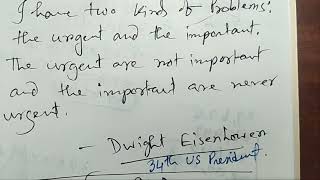 I have two kinds of problems:
the urgent and the important.
The urgent are not important
and the important are never
urgent.
- Dwight Eisenhower
34th US President.